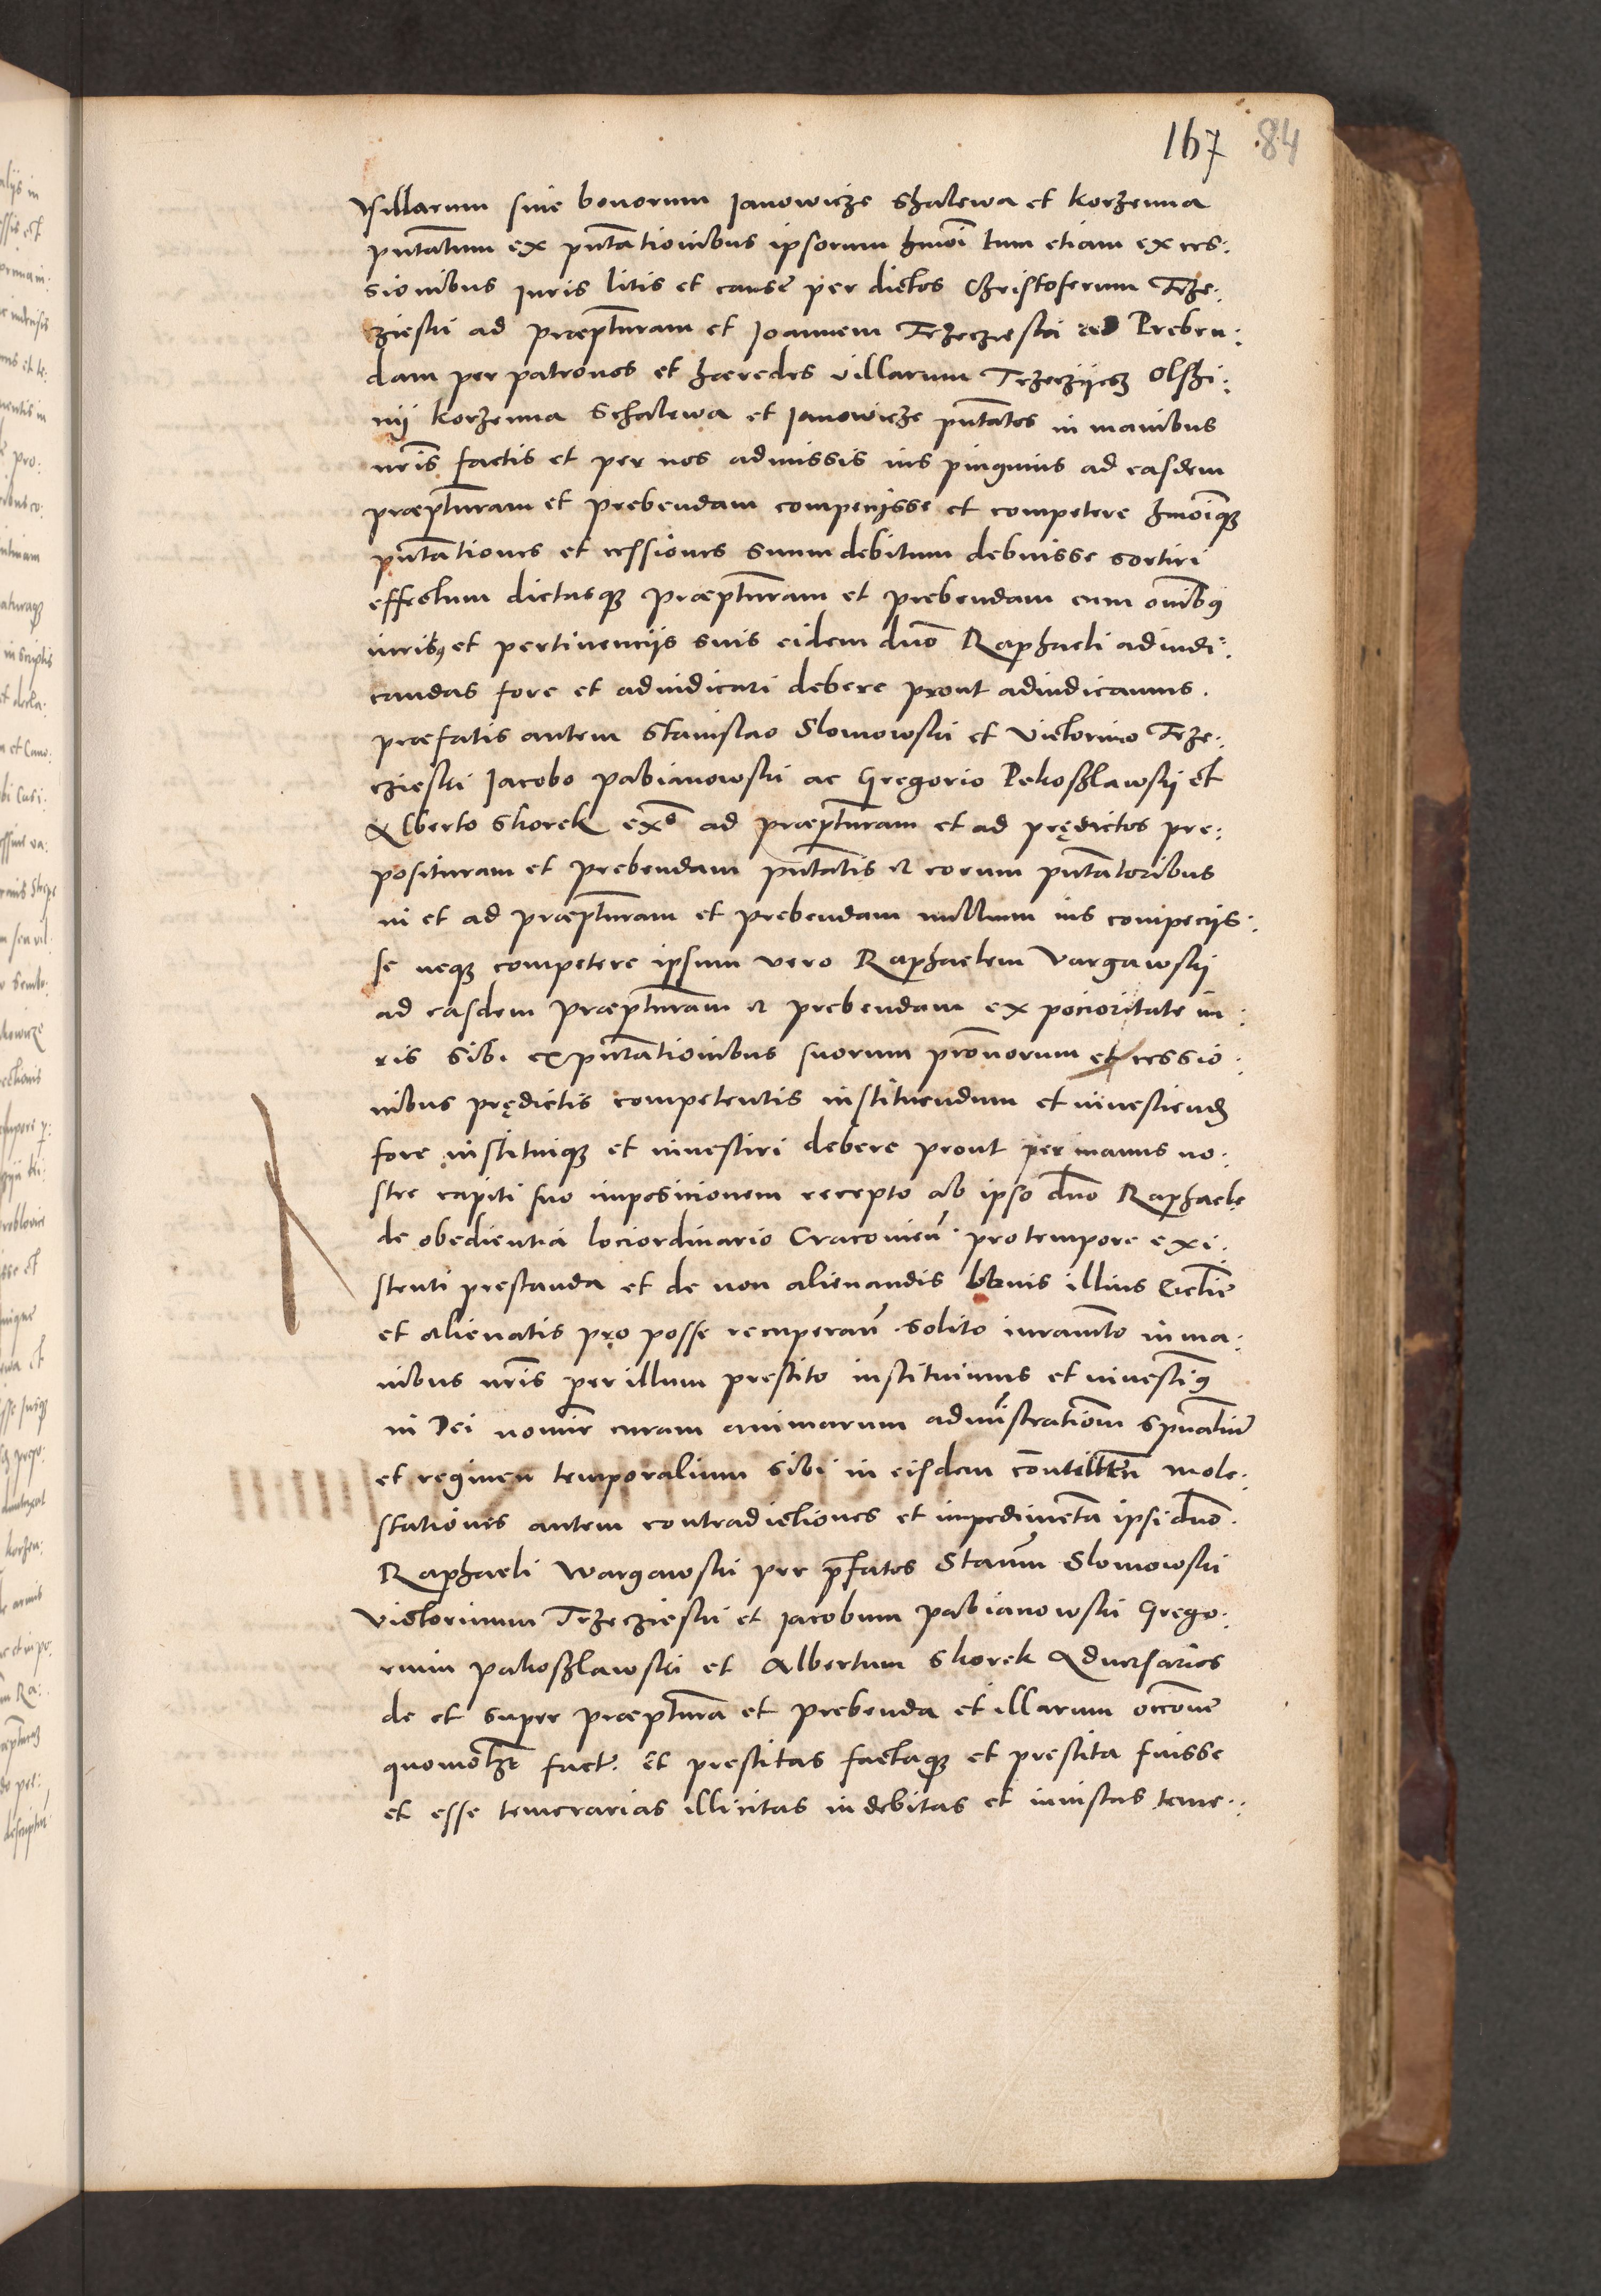 167 84
Villarum sine bonorum Janowicze Szalewa et Korzenna
pntatum ex pntationibus ipsorum hmoi tum etiam ex ces:
sionibus Juris litis et cause per dictos Christoferum Trze:
zieski ad praeptturam et Joannem Trzeczieski ad Preben:
dam per patronos et haeredes villarum Trzeczijesz Olszi:
nij Korzenna Schalewa et Janowicze pntatos in manibus
nris factis et per nos admissis ius pinguius ad easdem
praeptturam et prebendam competijsse et competere hmoiq
pntationes et cessiones suum debitum debuisse sortiri
effectum dictasq praeptturam et prebendam cum omnibus
iuribus et pertinenciis suis eidem dno Raphaeli adiudi:
candas fore et adiudicari debere prout adiudicamus.
praefatis autem Stanislao Slomowski et Victorino Trze:
czieski Jacobo Pabianowski ac Gregorio Pekoszlawsky et
Alberto Skorek exs ad praeptturam et ad prędictos pre:
posituram et prebendam pntatis et eorum pntatoribus
in et ad praeptturam et prebendam nullum ius compeciis:
se neq competere ipsum vero Raphaelem Vargawsky
ad easdem praeptturam et prebendam ex pocioritate iu:
ris sibi ex pntationibus suorum pronorum et cessio:
nibus prędictis competentis instituendum et investiend
fore instituiq et investiri debere prout per manus no:
stre capiti suo imposicionem recepto ab ipso dno Raphaele
de obedientia loci ordinario Cracovien pro tempore exi:
stenti prestanda et de non alienandis bonis illius Ecclie
et alienatis pro posse recuperan solito iuramto in ma:
nibus nris per illum prestito instituimus et investimus
in Dei nomine curam animarum administrationem spualium
et regimen temporalium sibi in eisdem comitten mole:
stationes autem contradictiones et impedimenta ipsi dno
Raphaeli Wargawski per pfatos Stanum Slomowski
Victorinum Trzeczieski et Jacobum Pabianowski Grego:
rium Pakoszlawski et Albertum Skorek Adversarios
de et super praepttura et prebenda et illarum occone
quomolzt fact: et prestitas factaq et prestita fuisse
et esse temerarias illicitas indebitas et iniustas teme: